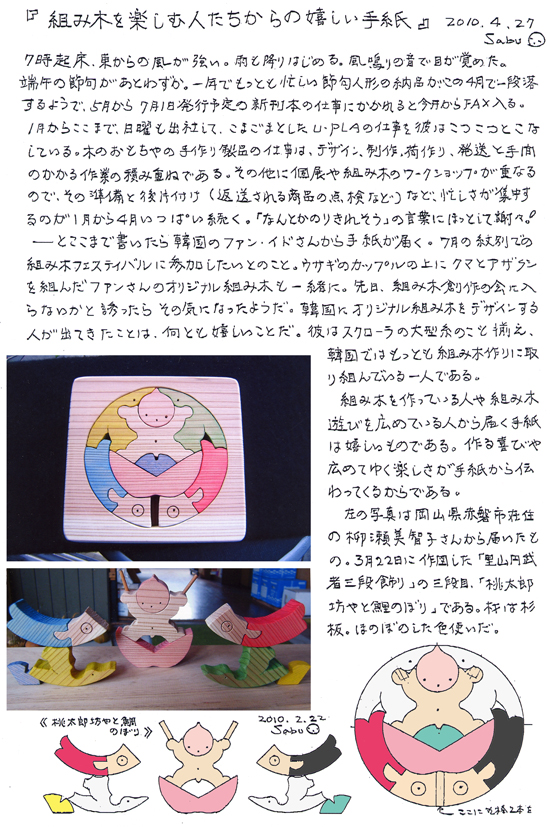 『組み木を楽しむ人たちからの嬉しい手紙』 2010.4.27
Sabu
7時起床、東からの風が強い。雨も降りはじめる。風鳴りの音で目が覚めた。
端午の節句があとわずか。一年でもっとも忙しい節句人形の納品がこの4月で一段落
するようで、5月から7月1日発行予定の新刊本の仕事にかかれると今月からFAX入る。
1月からここまで、日曜も出社して、こまごまとしたU-PLAの仕事を彼はこつこつとこな
している。木のおもちゃの手作り製品の仕事は、デザイン、制作、荷作り、発送と手間
のかかる作業の積み重ねである。その他に個展や組み木のワークショップが重なる
ので、その準備と後片付け(返送される商品の点検など)など、忙しさが集中す
るのが1月から4月いっぱい続く。「なんとかのりきれそう」の言葉にほっとして謝々。
――とここまで書いたら韓国のファン・イドさんから手紙が届く。7月の紋別での
組み木フェスティバルに参加したいとのこと。ウサギのカップルの上にクマとアザラシ
を組んだファンさんのオリジナル組み木も一緒に。先日、組み木創作の会に入
らないかと誘ったらその気になったようだ。韓国にオリジナル組み木をデザインする
人が出てきたことは、何とも嬉しいことだ。彼はスクローラの大型糸のこも揃え、
韓国ではもっとも組み木作りに取
り組んでいる一人である。
組み木を作っている人や組み木
遊びを広めている人から届く手紙
は嬉しいものである。作る喜びや
広めてゆく楽しさが手紙から伝
わってくるからである。
左の写真は岡山県赤磐市在住
の柳瀬美智子さんから届いたも
の。3月22日に作図した「里山円武
者三段飾り」の三段目、「桃太郎
坊やと鯉のぼり」である。材は杉
板。ほのぼのした色使いだ。
《桃太郎坊やと鯛
のぼり》
2010.2.22
Sabu
ここに
2本を